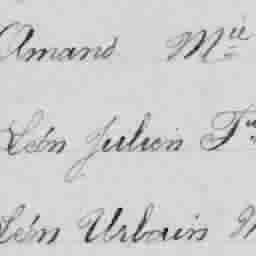 Amand Mie
Léon Julien Fu
Léon Urbain M